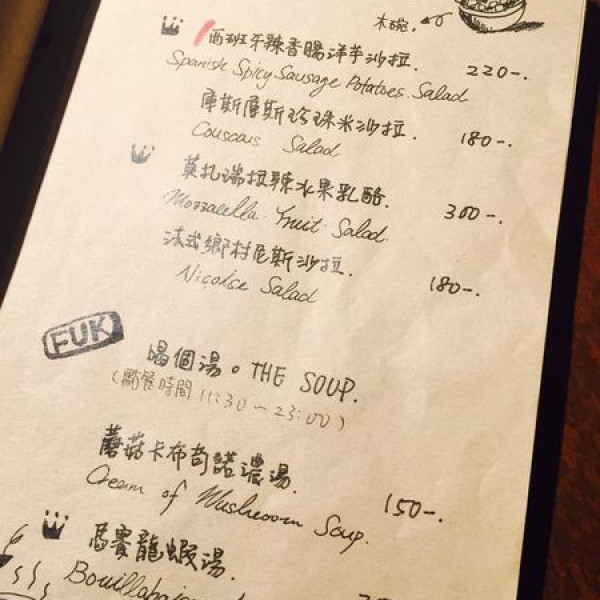 木碗.
西班牙辣香腸洋芋沙拉. 220-.
Spanish Spicy Sausage Potatoes Salad
庫斯庫斯珍珠米沙拉. 180-.
Couscous Salad
莫扎瑞拉辣水果乳酪. 300-.
Mozzarella Fruit Salad.
法式鄉村尼斯沙拉. 180-.
Nicoise Salad
FUK
喝個湯。THE SOUP.
(點餐時間 11:30~23:00)
蘑菇卡布奇諾濃湯. 150-.
Cream of Mushroom Soup.
馬賽龍蝦湯.